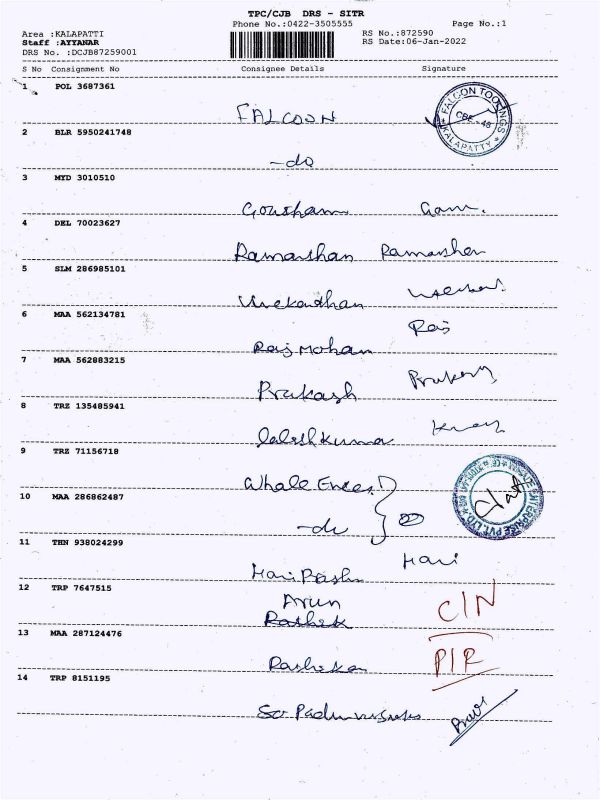 TPC/CJB DRS - SITR
Phone No.:0422-3505555
Page No.:1
Area :KALAPATTI
RS No.:872590
Staff :AIYANAR
RS Date:06-Jan-2022
DRS No. :DCJB87259001
S No Consignment No Consignee Details Signature
1 POL 3687361
FALCOON
FALCON TOOLINGS
CBE - 48
KALAPATTY
2 BLR 5950241748
-do
3 MYD 3010510
Goutham Gom.
4 DEL 70023627
5 SLM 286985101
6 MAA 562134781
Raj
Raj Mohan
7 MAA 562883215
Prakash
8 TRZ 135485941
9 TRZ 71156718
Whale
ENTERPRISE PVT. LTD.
10 MAA 286862487
-do
11 THN 938024299
Hari
Hari
12 TRP 7647515
Arun
C/N
13 MAA 287124476
P/R
14 TRP 8151195